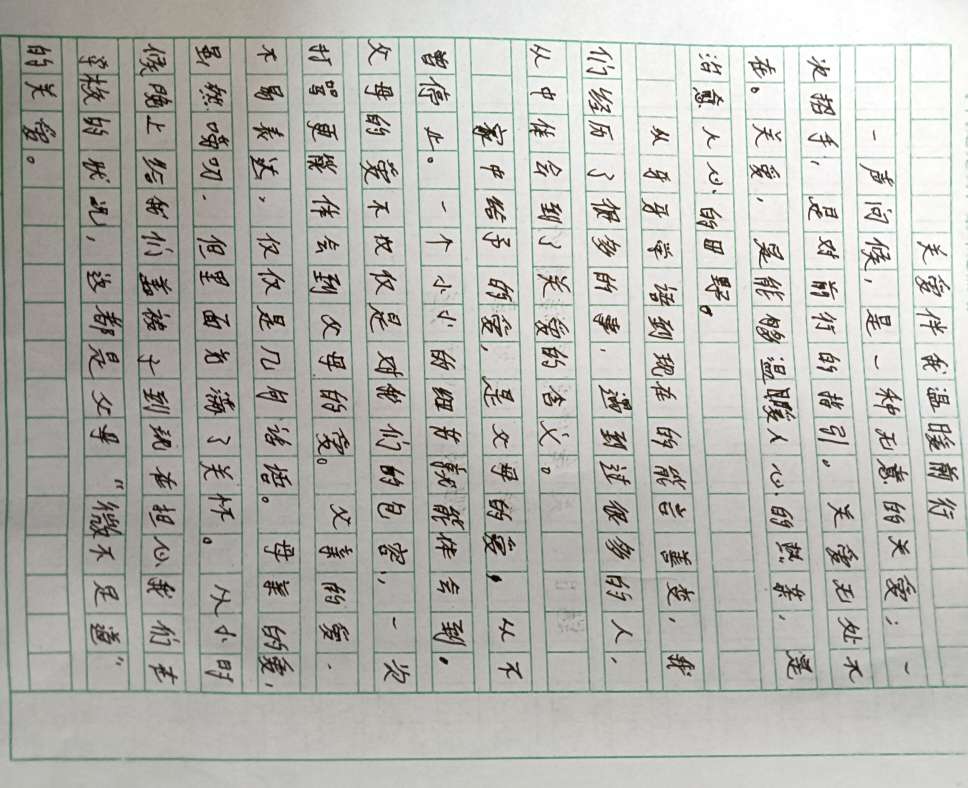 关爱伴我温暖前行
一声问候，是一种无意的关爱；一
次招手，是对前行的指引。关爱无处不
在。关爱，是能够温暖人心的热茶，是
治愈人心的田野。
从牙牙学语到现在的能言善变，我
们经历了很多的事，遇到过很多的人，
从中体会到了关爱的含义。
家中给予的爱，是父母的爱，从不
曾停止。一个小小的细节就能体会到。
父母的爱不仅仅是对我们的包容，一次
打骂更能体会到父母的爱。父亲的爱，
不易表达，仅仅是几句话语。母亲的爱，
虽然唠叨，但里面充满了关怀。从小时
候晚上给我们盖被子到现在担心我们在
学校的状况，这都是父母“微不足道”
的关爱。